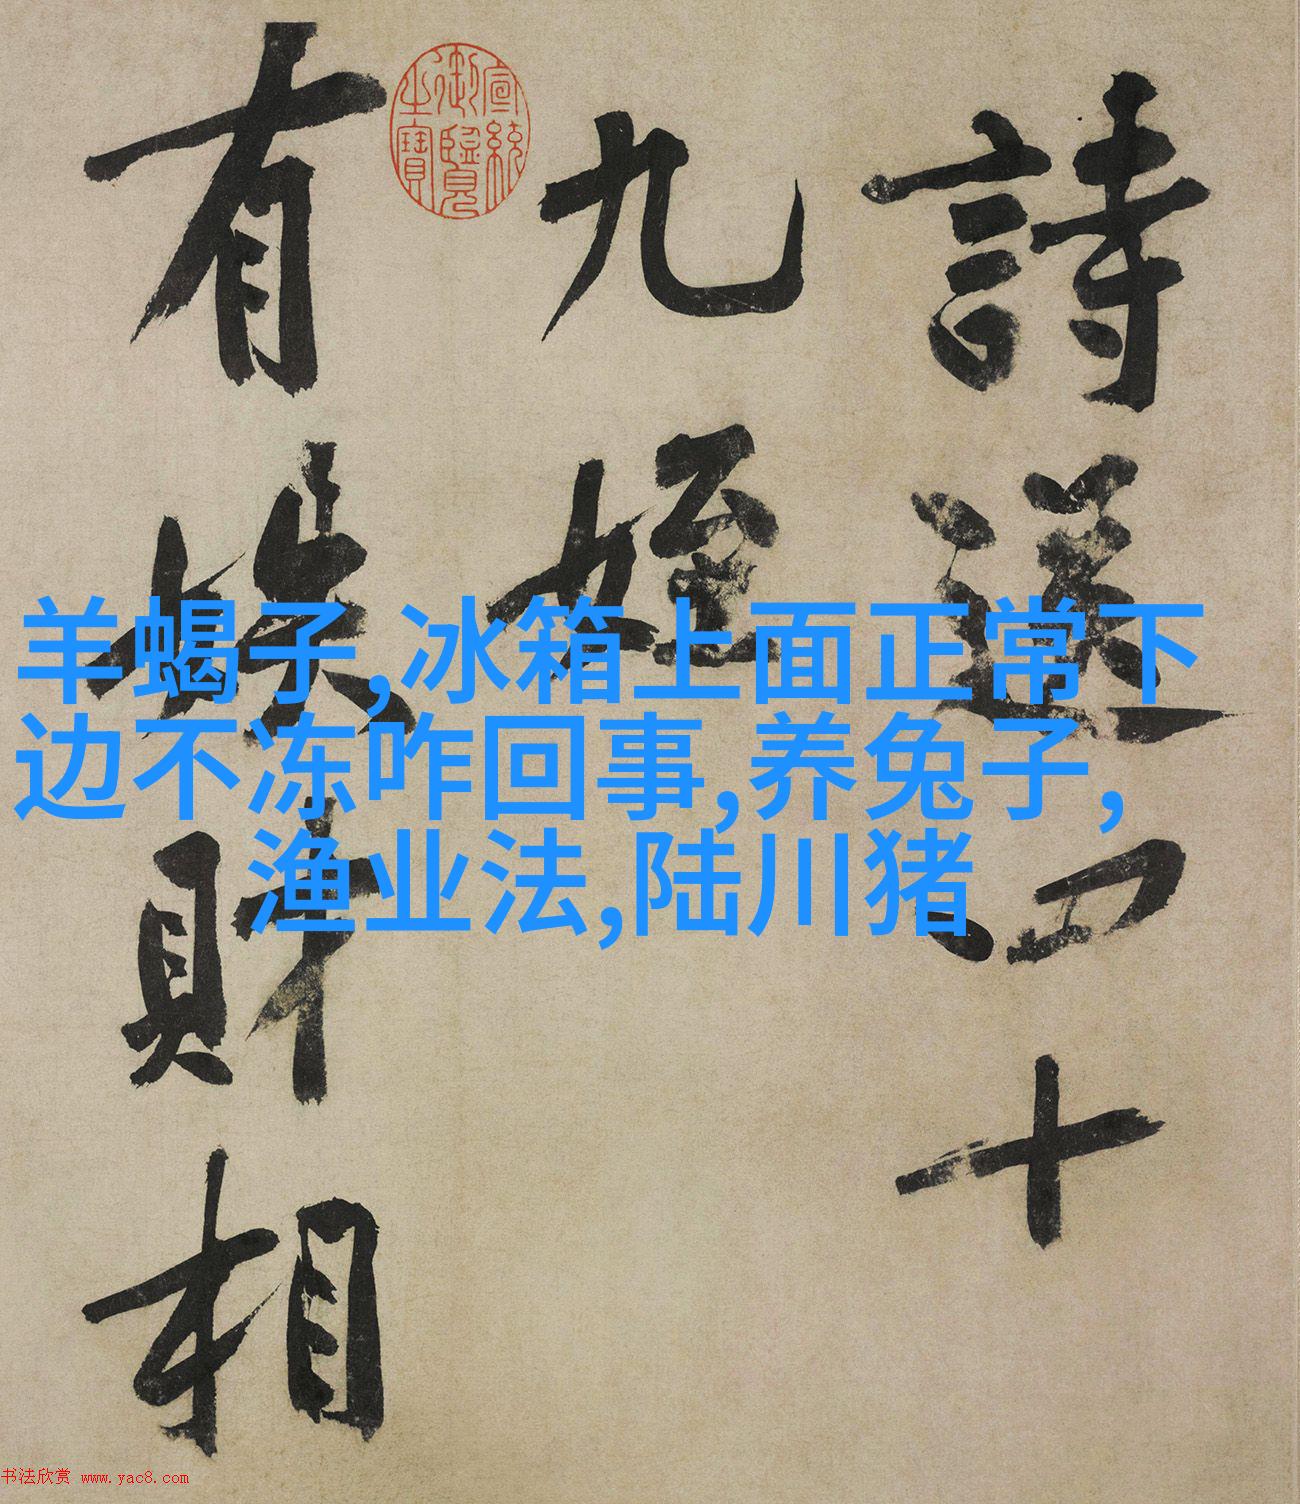 詩送四十
九姪
有財相
宣統
御覽
之寶
羊蝎子,冰箱上面正常下
边不冻咋回事,养兔子,
渔业法,陆川猪
书法欣赏 www.yac8.com